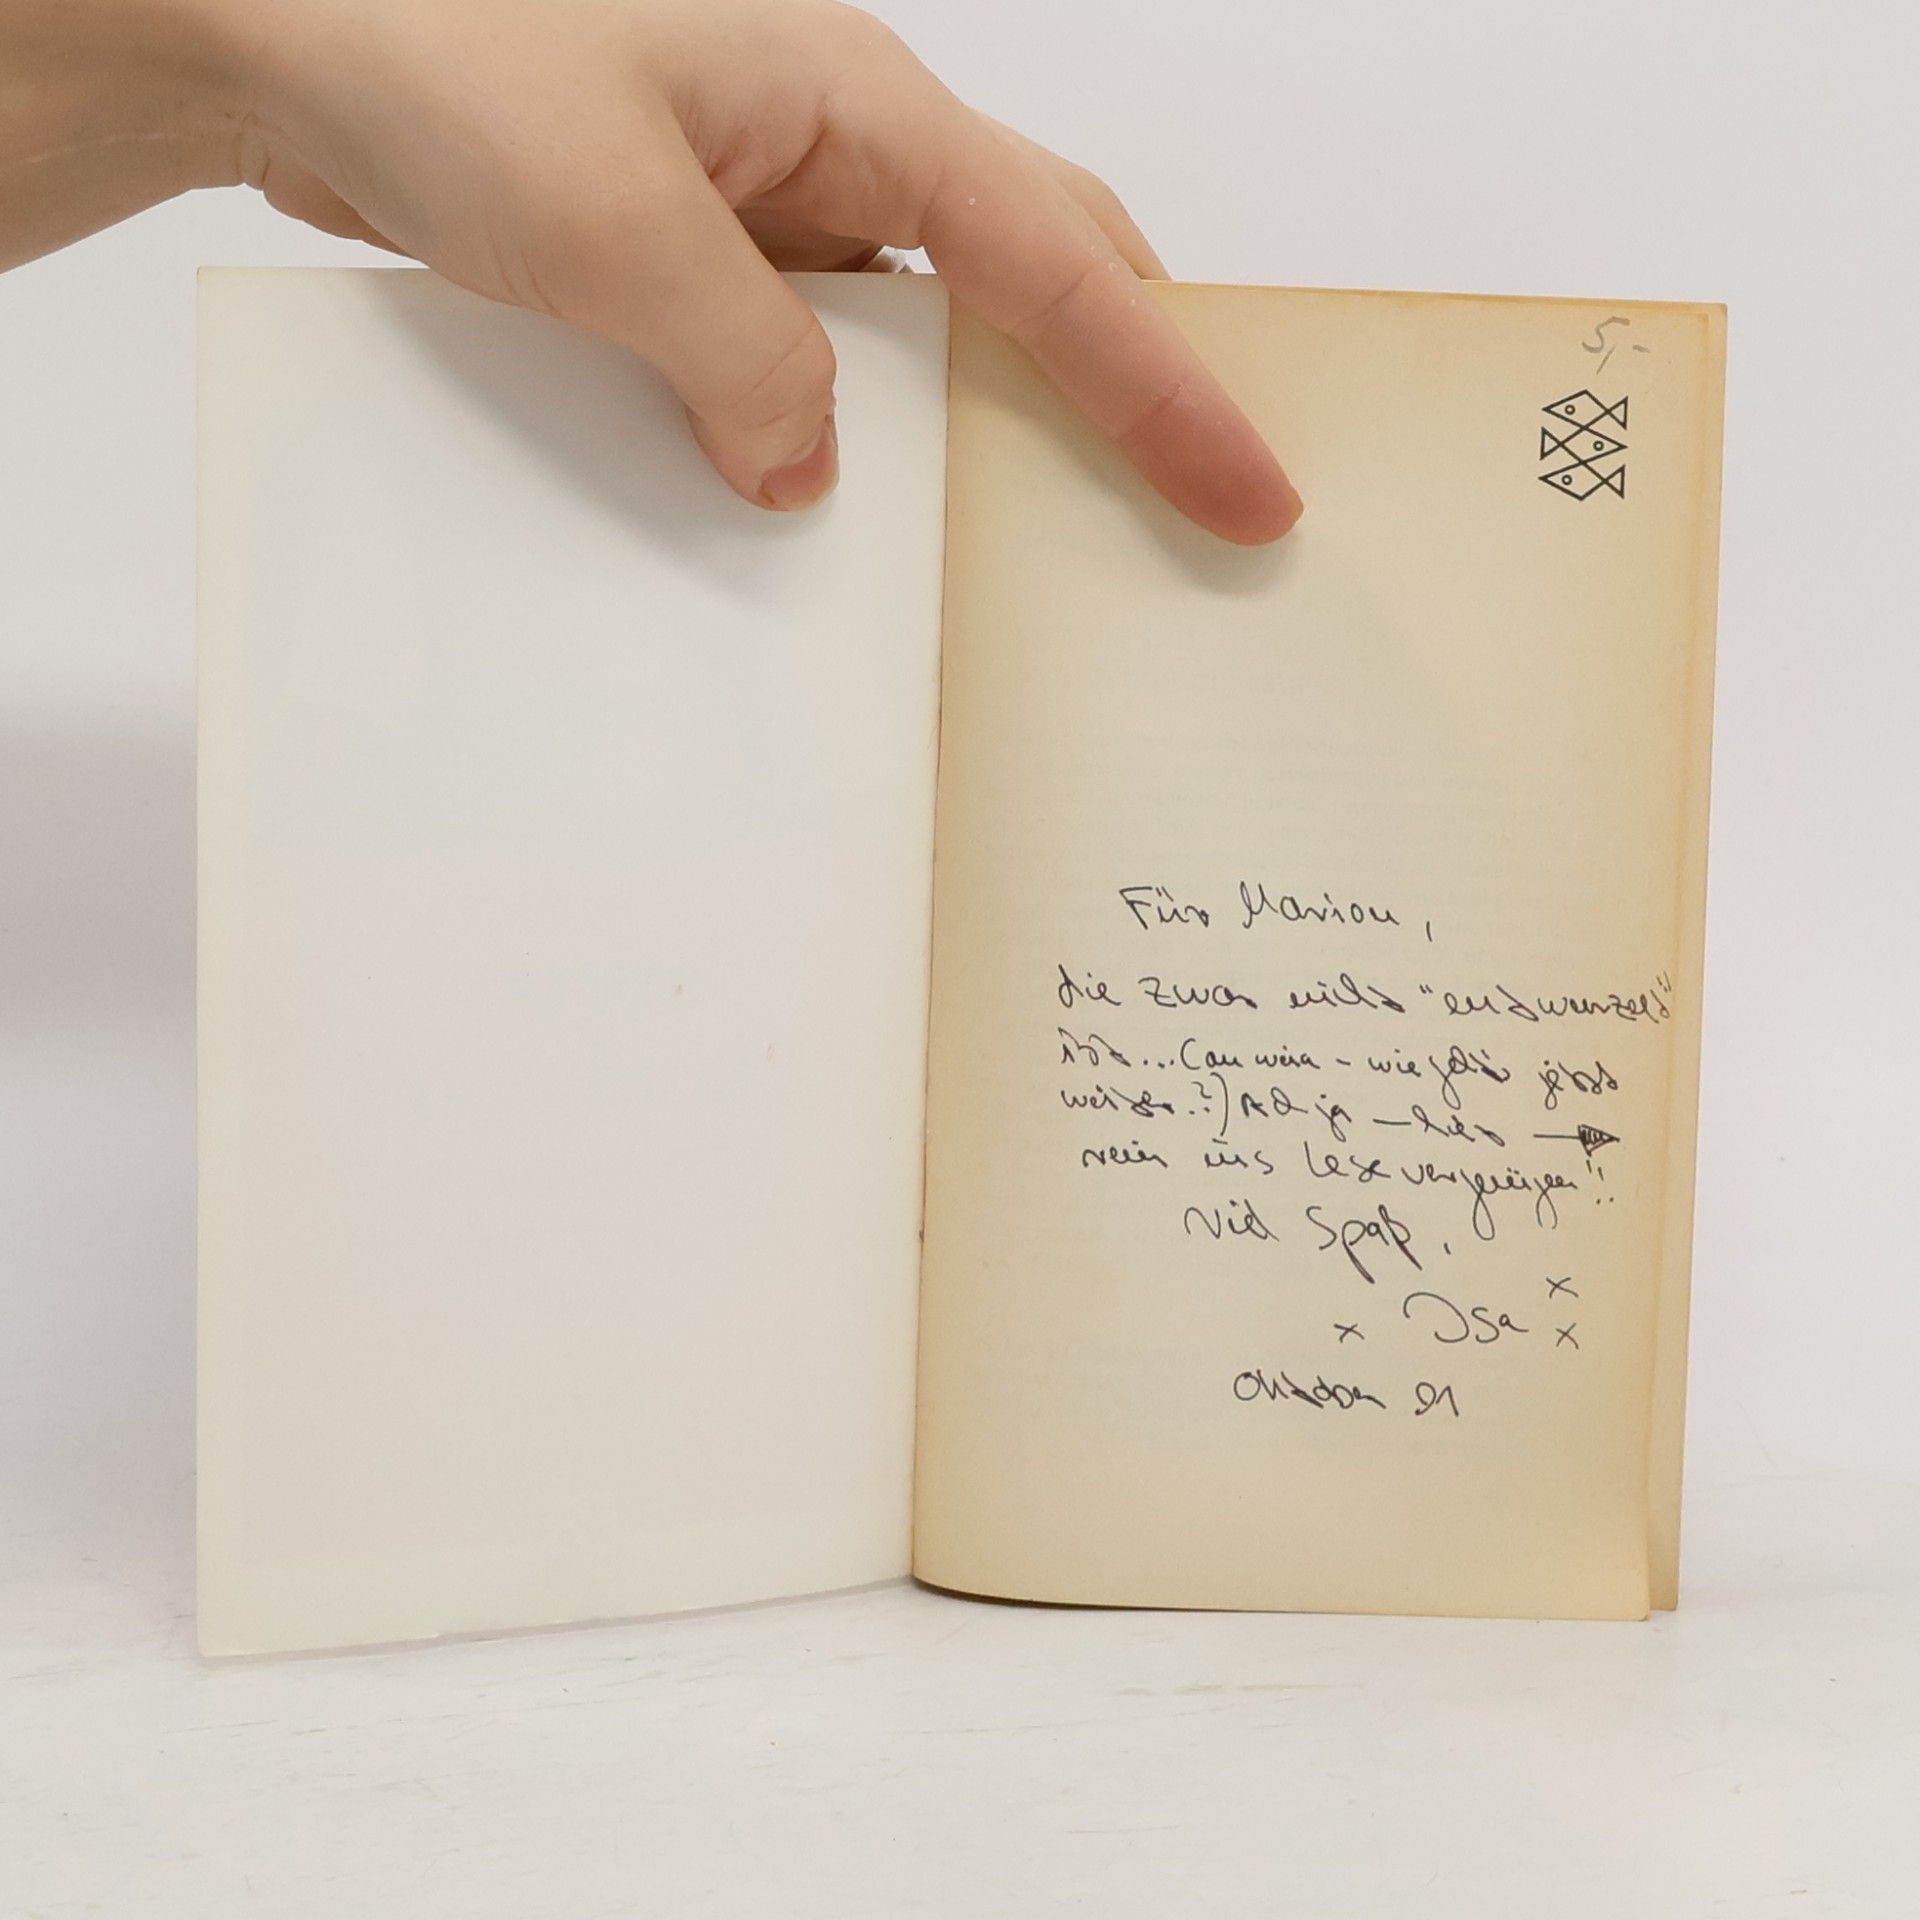 5,-
Für Marion,
die zwar nicht "entwurzelt"
ist... (au weia - wie geht's jetzt
weiter ?) Ach ja - hier →
rein ins Lesevergnügen!!
Viel Spaß,
x Isa x x
Oktober 91